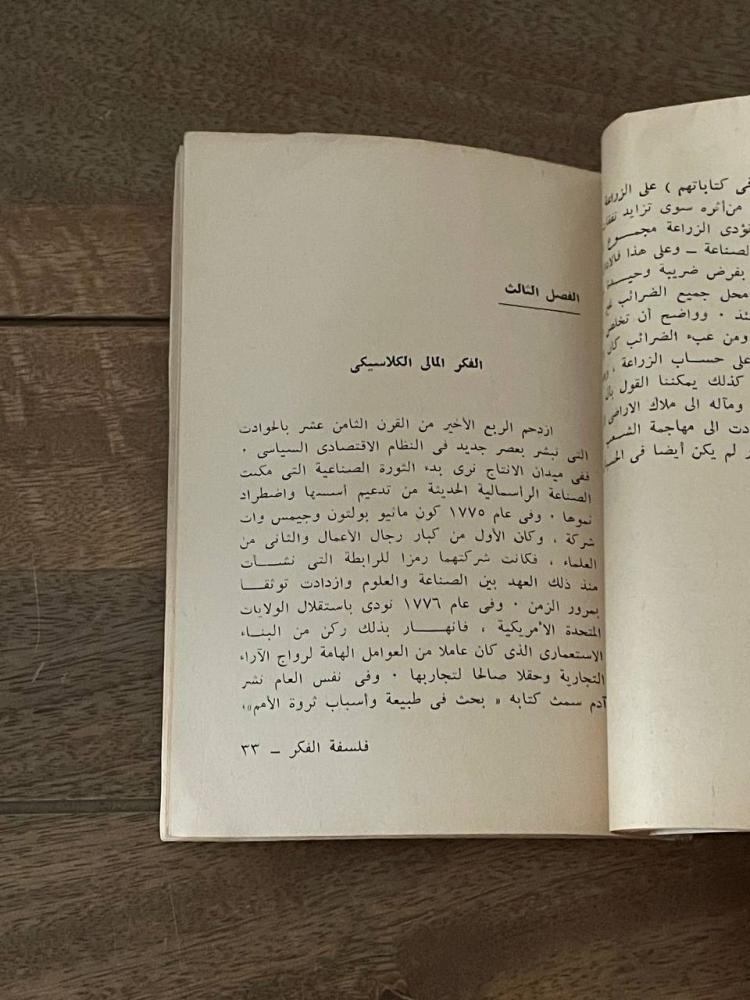 فى كتاباتهم ) على الزراعة
من أثره سوى تزايد
تؤدى الزراعة مجمـــوع
الصناعة ــ وعلى هذا
بفرض ضريبة وحيــدة
محل جميع الضرائب
وواضح أن
ومن عبء الضرائب
على حساب الزراعة ،
كذلك يمكننا القول
ومآله الى ملاك الاراضى
دت الى مهاجمة
لم يكن أيضا فى
الفصل الثالث
الفكر المالى الكلاسيكى
ازدحم الربع الأخير من القرن الثامن عشر بالحوادث
التى تبشر بعصر جديد فى النظام الاقتصادى السياسى ٠
ففى ميدان الانتاج نرى بدء الثورة الصناعية التى مكنت
الصناعة الرأسمالية الحديثة من تدعيم أسسها واضطراد
نموها ٠ وفى عام ١٧٧٥ كون ماثيو بولتون وجيمس وات
شركة ، وكان الأول من كبار رجال الأعمال والثانى من
العلماء ، فكانت شركتهما رمزا للرابطة التى نشـــأت
منذ ذلك العهد بين الصناعة والعلوم وازدادت توثقــا
بمرور الزمن ٠ وفى عام ١٧٧٦ نودى باستقلال الولايات
المتحدة الأمريكية ، فانهـــار بذلك ركن من البنـاء
الاستعمارى الذى كان عاملا من العوامل الهامة لرواج الآراء
التجارية وحقلا صالحا لتجاربها ٠ وفى نفس العام نشر
آدم سمث كتابه « بحث فى طبيعة وأسباب ثروة الأمم»،
فلسفة الفكر ــ ٣٣